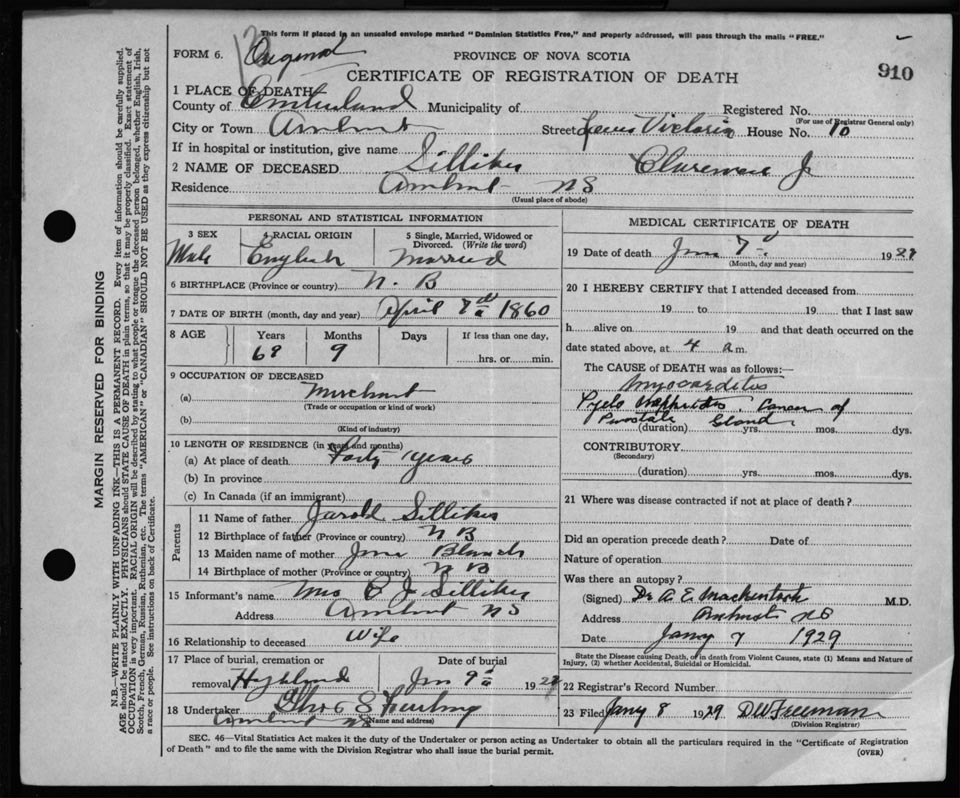 This form if placed in an unsealed envelope marked "Dominion Statistics Free," and properly addressed, will pass through the mails "FREE."
FORM 6. Original
PROVINCE OF NOVA SCOTIA
CERTIFICATE OF REGISTRATION OF DEATH
910
1 PLACE OF DEATH
County of Cumberland Municipality of Registered No.
(For use of Registrar General only)
City or Town Amherst Street Victoria House No. 10
If in hospital or institution, give name
2 NAME OF DECEASED Silliker Clarence J
Residence Amherst NS
(Usual place of abode)
PERSONAL AND STATISTICAL INFORMATION
3 SEX 4 RACIAL ORIGIN 5 Single, Married, Widowed or Divorced. (Write the word)
Male English Married
6 BIRTHPLACE (Province or country) N. B
7 DATE OF BIRTH (month, day and year) April 7th 1860
8 AGE Years Months Days If less than one day,
68 9 hrs. or min.
9 OCCUPATION OF DECEASED
(a) Merchant
(Trade or occupation or kind of work)
(b)
(Kind of industry)
10 LENGTH OF RESIDENCE (in years and months)
(a) At place of death Forty years
(b) In province
(c) In Canada (if an immigrant)
Parents
11 Name of father Silliker
12 Birthplace of father (Province or country) N B
13 Maiden name of mother Jane
14 Birthplace of mother (Province or country) N B
15 Informant's name Mrs C J Silliker
Address Amherst NS
16 Relationship to deceased Wife
17 Place of burial, cremation or Date of burial
removal Highland Jan 9th 1929
18 Undertaker Thos S
Amherst NS (Name and address)
MEDICAL CERTIFICATE OF DEATH
19 Date of death Jan 7th 1929
(Month, day and year)
20 I HEREBY CERTIFY that I attended deceased from
19 to 19 that I last saw
h alive on 19 and that death occurred on
date stated above, at 4 a m.
The CAUSE OF DEATH was as follows:—
Myocarditis
Pyelo Nephritis, Cancer of
Prostate Gland
(duration) yrs. mos. dys.
CONTRIBUTORY
(Secondary)
(duration) yrs. mos. dys.
21 Where was disease contracted if not at place of death?
Did an operation precede death? Date of
Nature of operation
Was there an autopsy?
(Signed) Dr A. E. Mackintosh M.D.
Address Amherst NS
Date Jany 7 1929
State the Disease causing Death, or in death from Violent Causes, state (1) Means and Nature of
Injury, (2) whether Accidental, Suicidal or Homicidal.
22 Registrar's Record Number
23 Filed Jany 8 1929 DW Freeman
(Division Registrar)
SEC. 46—Vital Statistics Act makes it the duty of the Undertaker or person acting as Undertaker to obtain all the particulars required in the "Certificate of Registration
of Death" and to file the same with the Division Registrar who shall issue the burial permit.
(OVER)
MARGIN RESERVED FOR BINDING
N.B.—WRITE PLAINLY WITH UNFADING INK—THIS IS A PERMANENT RECORD. Every item of information should be carefully supplied.
AGE should be stated EXACTLY. PHYSICIANS should STATE CAUSE OF DEATH in plain terms, so that it may be properly classified. Exact statement of
OCCUPATION is very important. RACIAL ORIGIN will be described by stating to what people or tongue the deceased person belonged, whether English, Irish,
Scotch, French, German, Russian, Ruthenian, etc. The terms "AMERICAN" or "CANADIAN" SHOULD NOT BE USED as they express citizenship but not
a race or people. See instructions on back of Certificate.